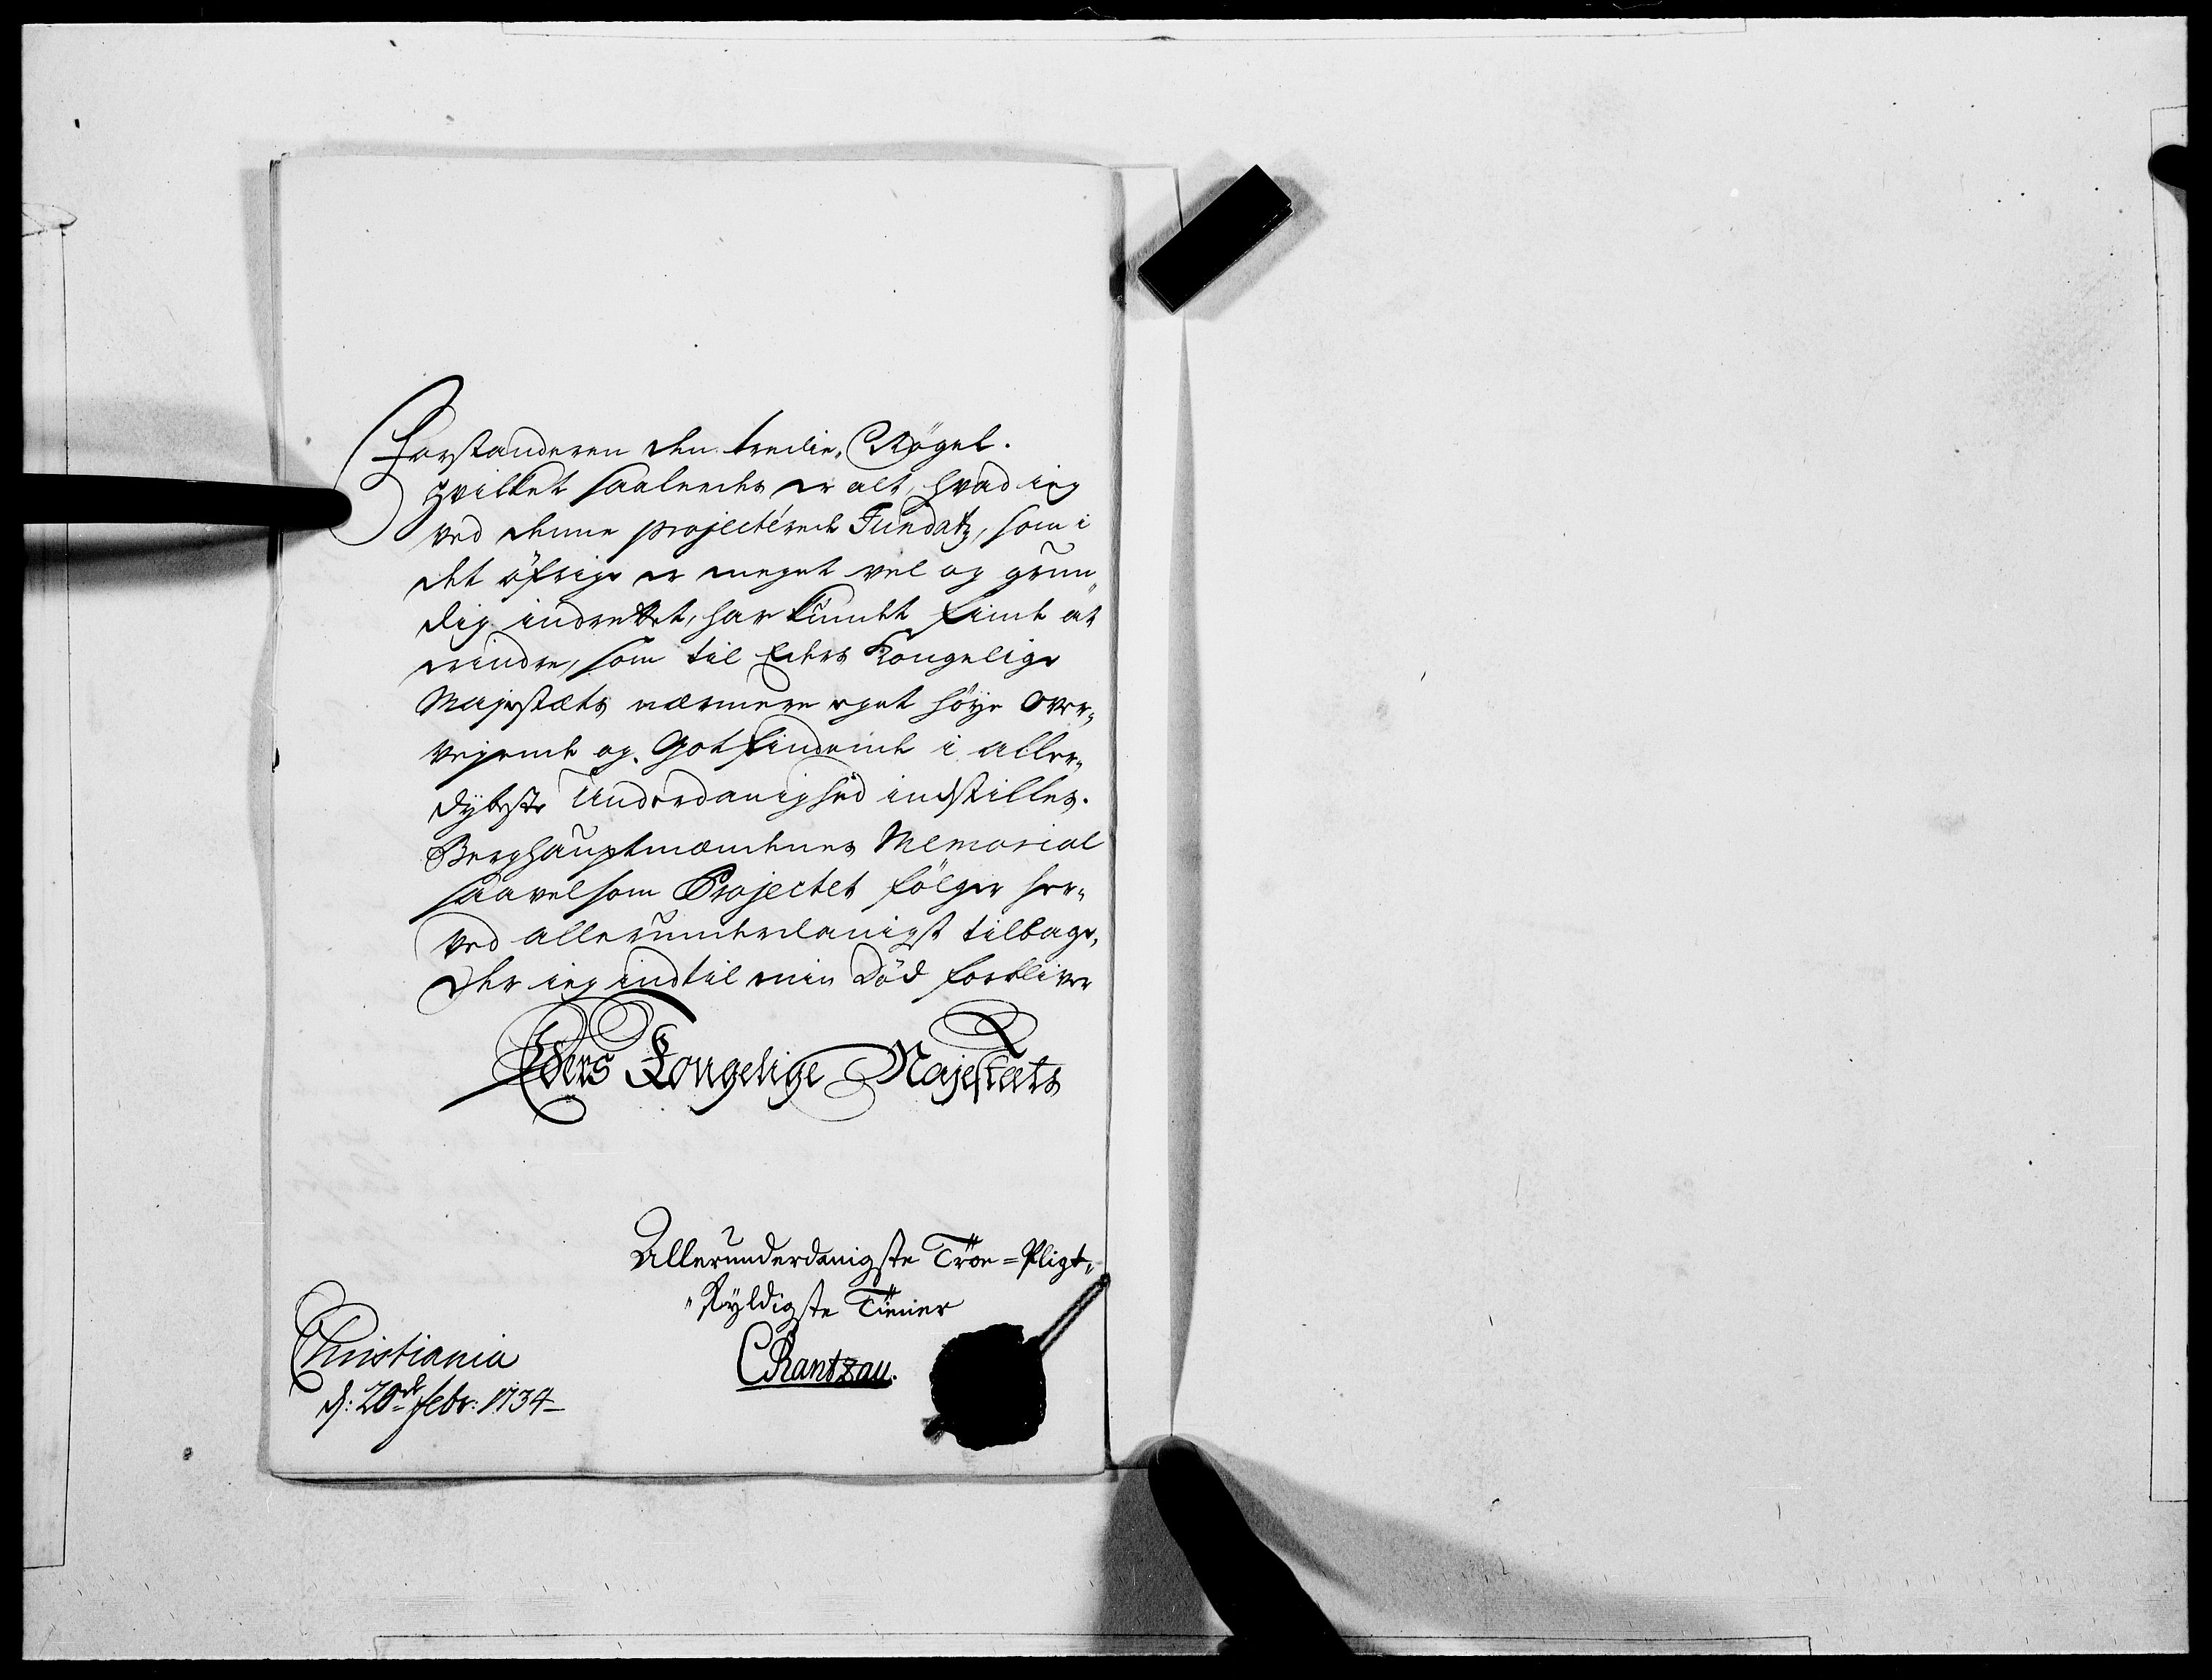 Forstanderen den tredie Nøgel.
Hvilket saaledes er alt, hvad ieg
ved denne projecterede Fundatz, som i
det öfrige er meget vel og grun„
dig indrettet, har kundet finde at
erindre, som til Eders Kongelige
Majestæts nærmere eget höye Over„
vejende og Gotfindende i aller„
dybeste Underdanighed indstilles.
Berghauptmændenes Memorial
saavelsom Projectet fölger her„
ved allerunderdanigst tilbage,
Der ieg indtil min Död forbliver
Eders Kongelige Majestæts
Allerunderdanigste Troe=Pligt„
„Skyldigste Tiener
CRantzau.
Christiania
d: 20de febr: 1734